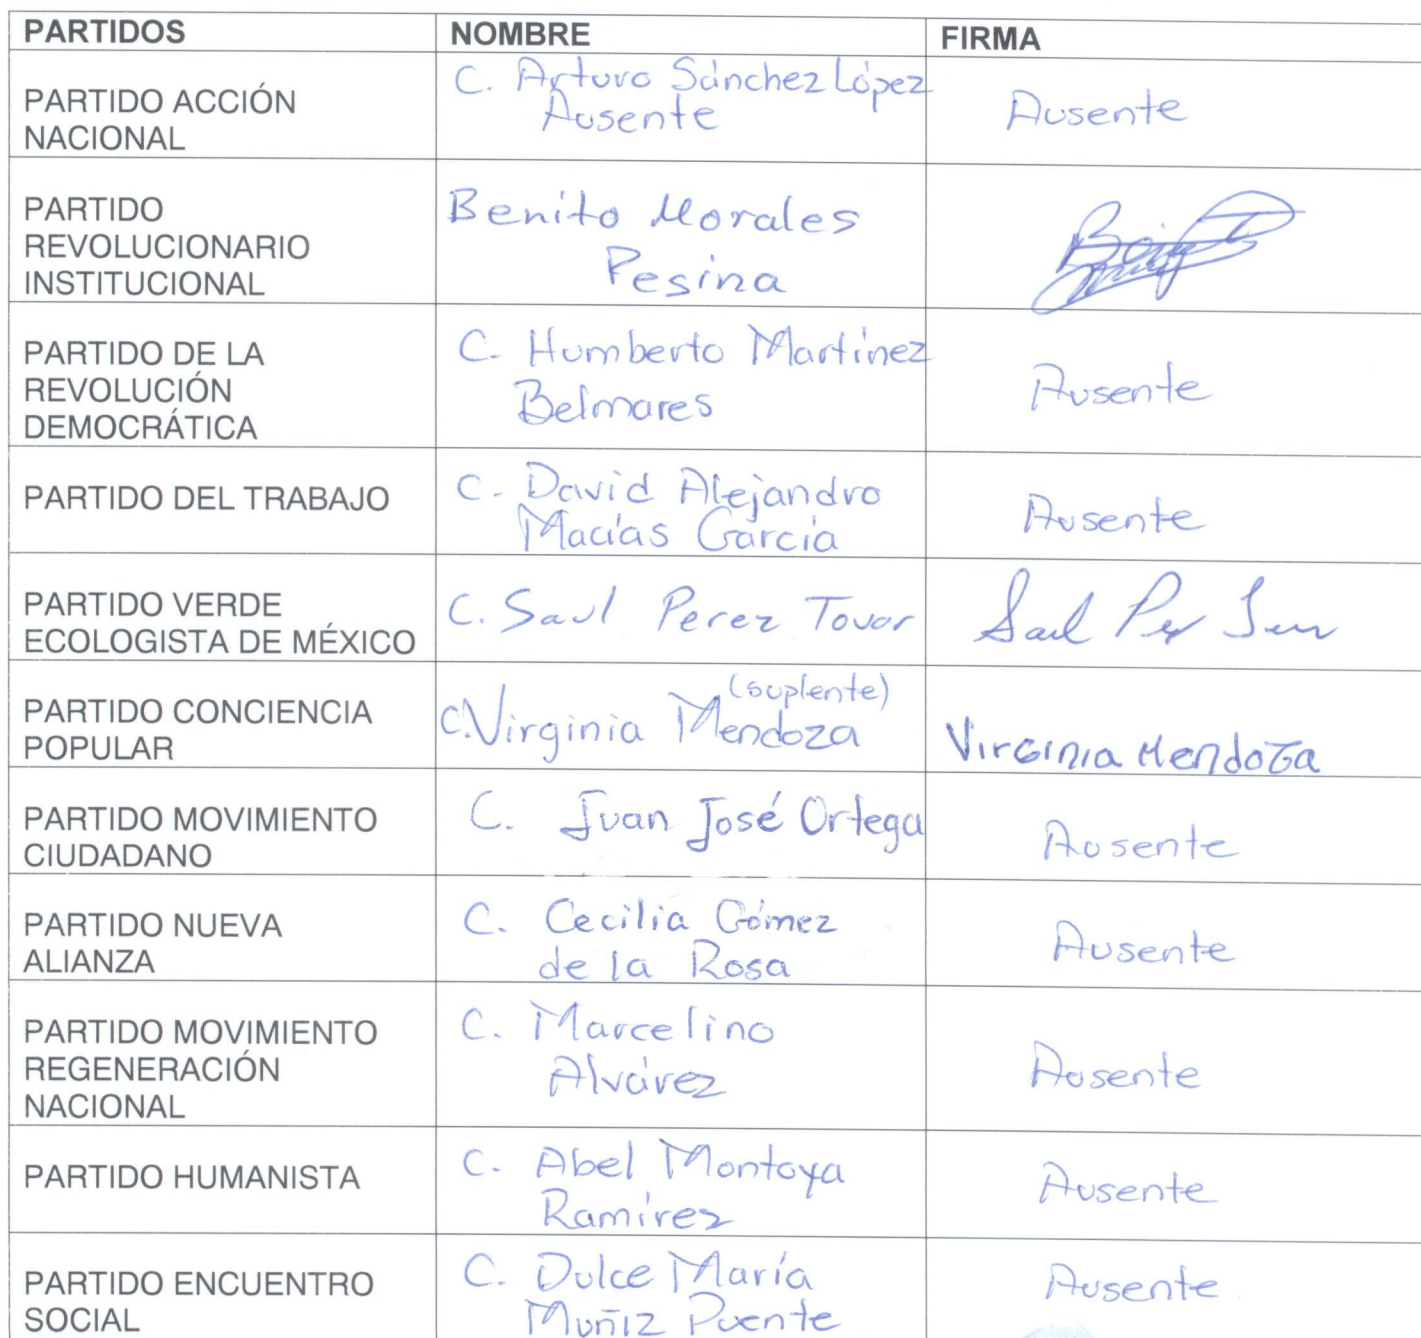 PARTIDOS NOMBRE FIRMA
PARTIDO ACCIÓN
NACIONAL
C. Arturo Sánchez López
Ausente
Ausente
PARTIDO
REVOLUCIONARIO
INSTITUCIONAL
Benito Morales
Pesina
PARTIDO DE LA
REVOLUCIÓN
DEMOCRÁTICA
C. Humberto Martínez
Belmares
Ausente
PARTIDO DEL TRABAJO
C. David Alejandro
Macías García
Ausente
PARTIDO VERDE
ECOLOGISTA DE MÉXICO
C. Saul Perez Tovar
Saul
PARTIDO CONCIENCIA
POPULAR
(suplente)
C. Virginia Mendoza
Virginia Mendoza
PARTIDO MOVIMIENTO
CIUDADANO
C. Juan José Ortega
Ausente
PARTIDO NUEVA
ALIANZA
C. Cecilia Gómez
de la Rosa
Ausente
PARTIDO MOVIMIENTO
REGENERACIÓN
NACIONAL
C. Marcelino
Alvárez
Ausente
PARTIDO HUMANISTA
C. Abel Montoya
Ramírez
Ausente
PARTIDO ENCUENTRO
SOCIAL
C. Dulce María
Muñiz Puente
Ausente